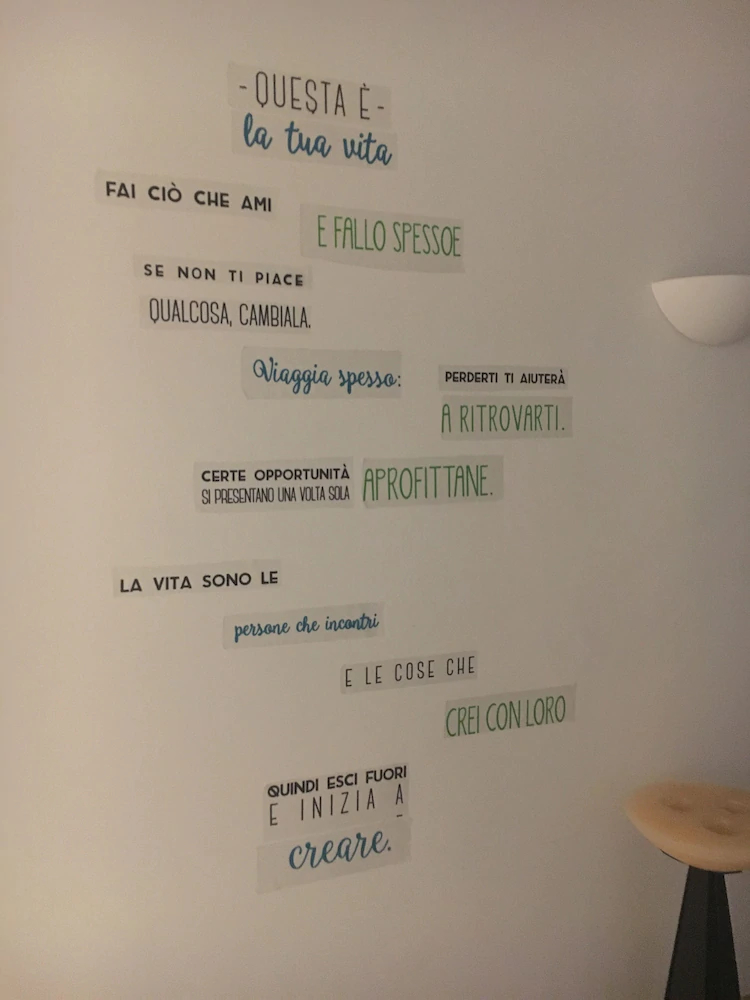 - QUESTA È -
la tua vita
FAI CIÒ CHE AMI
E FALLO SPESSOE
SE NON TI PIACE
QUALCOSA, CAMBIALA.
Viaggia spesso:
PERDERTI TI AIUTERÀ
A RITROVARTI.
CERTE OPPORTUNITÀ
SI PRESENTANO UNA VOLTA SOLA
APROFITTANE.
LA VITA SONO LE
persone che incontri
E LE COSE CHE
CREI CON LORO
QUINDI ESCI FUORI
E INIZIA A
creare.